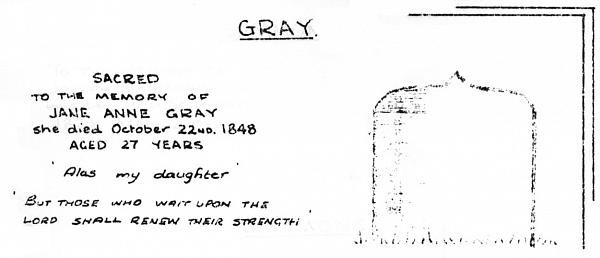 GRAY.
SACRED
TO THE MEMORY OF
JANE ANNE GRAY
she died October 22ND. 1848
AGED 27 YEARS
'Alas my daughter'
'BUT THOSE WHO WAIT UPON THE
LORD SHALL RENEW THEIR STRENGTH'